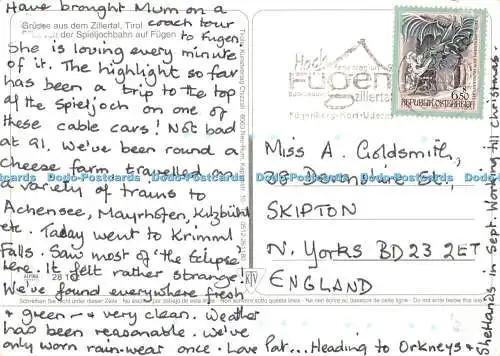 Have brought Mum on a
Grüsse aus dem Zillertal, Tirol
coach tour
der Spieljochbahn auf Fügen
to Fügen.
She is loving every minute
of it. The highlight so far
has been a trip to the top
of the Spieljoch on one of
these cable cars! Not bad
at 91. We've been round a
cheese farm, travelled on
a variety of trains to
Achensee, Mayrhofen, Kitzbühl
etc. Today went to Krimml
Falls. Saw most of the Eclipse
here. It felt rather strange!
We've found everywhere fresh
Schreiben Sie nicht unter dieser Zeile
& green & very clean. Weather
has been reasonable. We've
only worn rain-wear once. Love Pat... Heading to Orkneys &
Shetlands in Sept. Working till Christmas
Tiroler Kunstverlag Chizzali
ALPINA
Hoch
Fügen
zillertal
6.50
REPUBLIK ÖSTERREICH
Miss A. Goldsmith,
38 Devonshire St.,
SKIPTON
N. YORKS BD23 2ET
ENGLAND
Dodo-Postcards Dodo-Postcards Dodo-Postcards Dodo-Postcards Dodo-Postcards